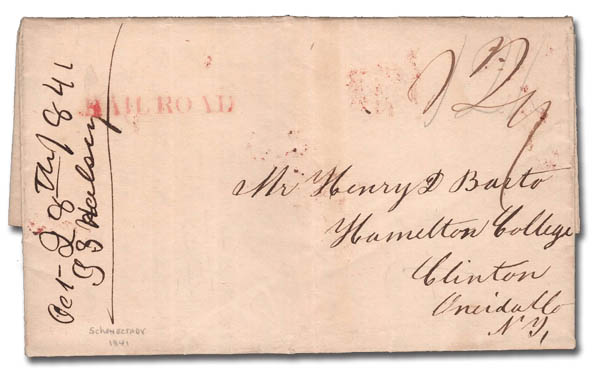 RAILROAD
12½
Mr Henry D Barto
Hamelton College
Clinton
Oneida Co
N Y,
Oct- 28th 1841
S S Halsey
SCHENECTADY
1841